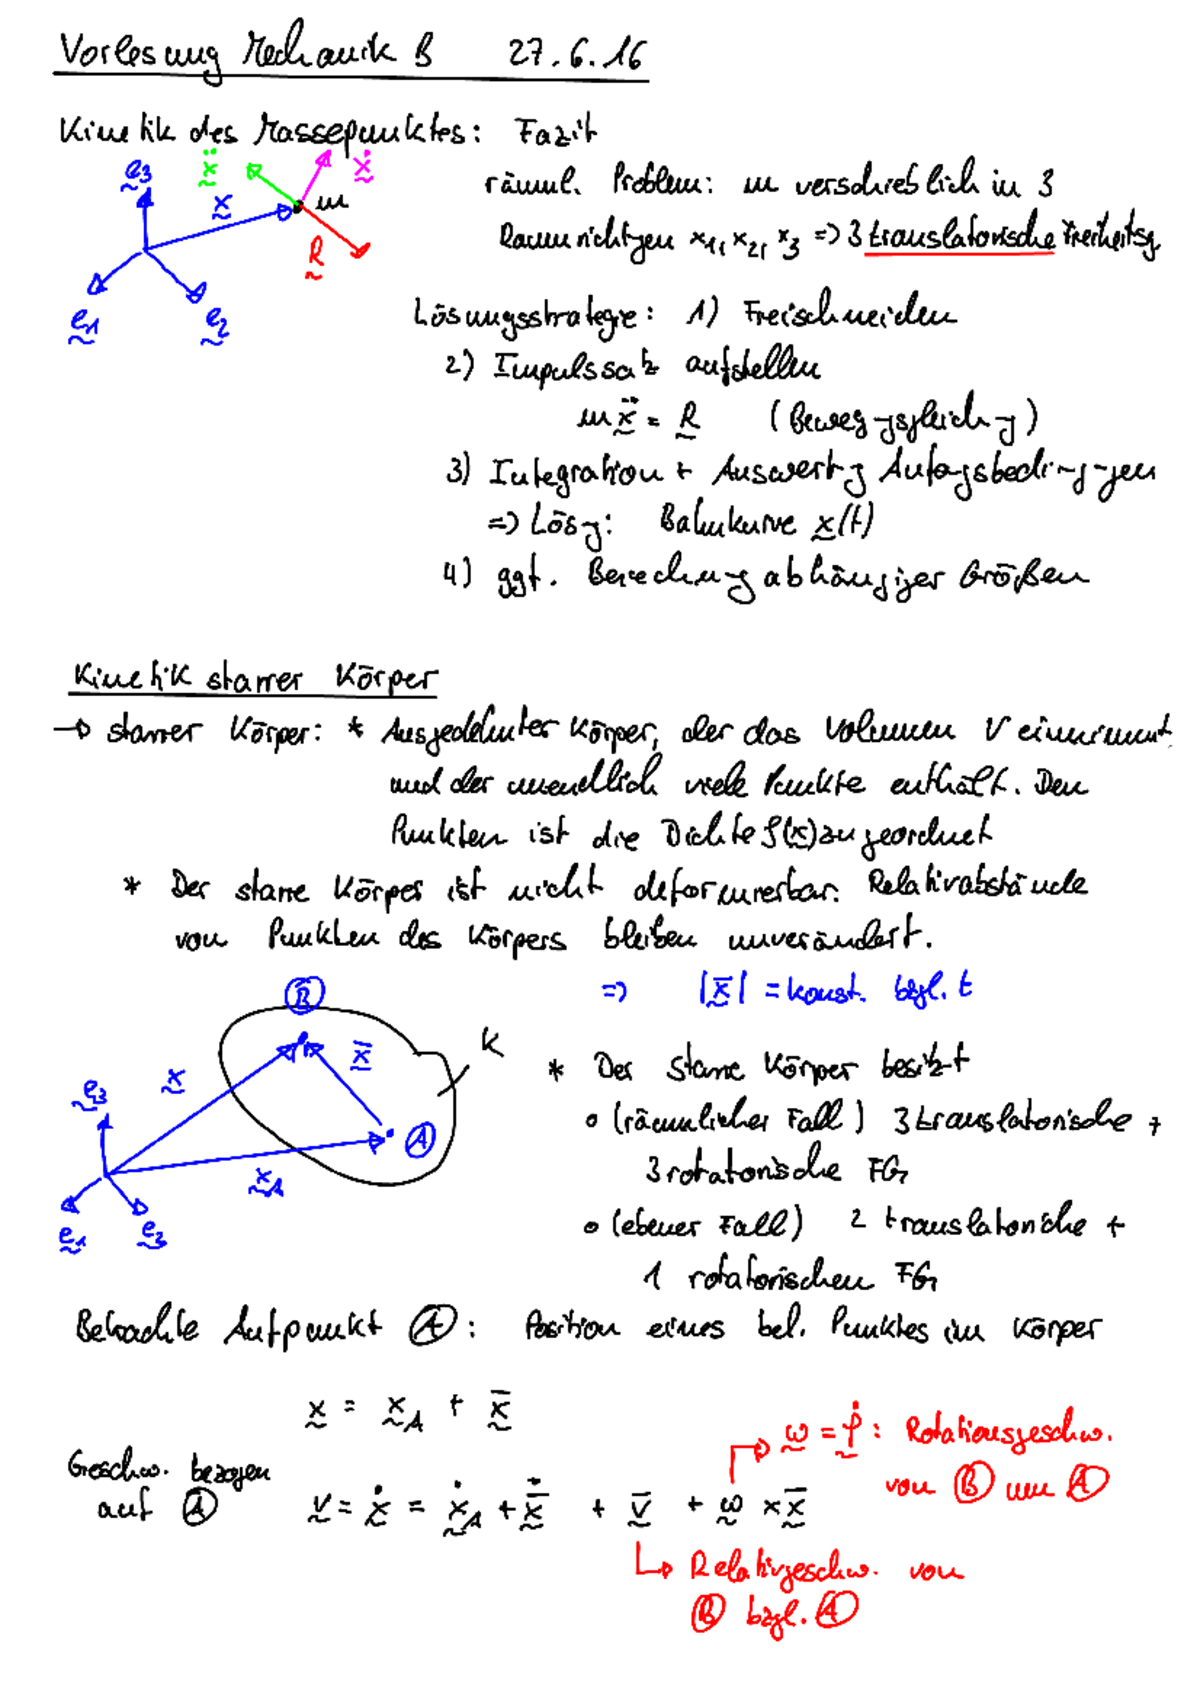 Vorlesung Mechanik B 27.6.16
Kinetik des Massepunktes: Fazit
e3 ẍ x ẋ m R e1 e2
räuml. Problem: m verschieblich in 3
Raumrichtgen x1, x2, x3 => 3 translatorische Freiheitsg.
Lösungsstrategie: 1) Freischneiden
2) Impulssatz aufstellen
m ẍ = R (Bewegungsgleichung)
3) Integration + Auswertg Anfangsbedingungen
=> Lösg: Bahnkurve x(t)
4) ggf. Berechnung abhängiger Größen
Kinetik starrer Körper
→ starrer Körper: * Ausgedehnter Körper, der das Volumen V einnimmt
und der unendlich viele Punkte enthält. Den
Punkten ist die Dichte ρ(x) zugeordnet
* Der starre Körper ist nicht deformierbar. Relativabstände
von Punkten des Körpers bleiben unverändert.
=> |x̄| = konst. bzgl. t
B x̄ K x A xA e3 e1 e2
* Der starre Körper besitzt
o (räumlicher Fall) 3 translatorische +
3 rotatorische FG
o (ebener Fall) 2 translatorische +
1 rotatorischen FG
Betrachte Aufpunkt A: Position eines bel. Punktes im Körper
x = xA + x̄
ω = φ̇: Rotationsgeschw.
von B um A
Geschw. bezogen
auf A
v = ẋ = ẋA + x̄̇ + v̄ + ω × x̄
↳ Relativgeschw. von
B bzgl. A